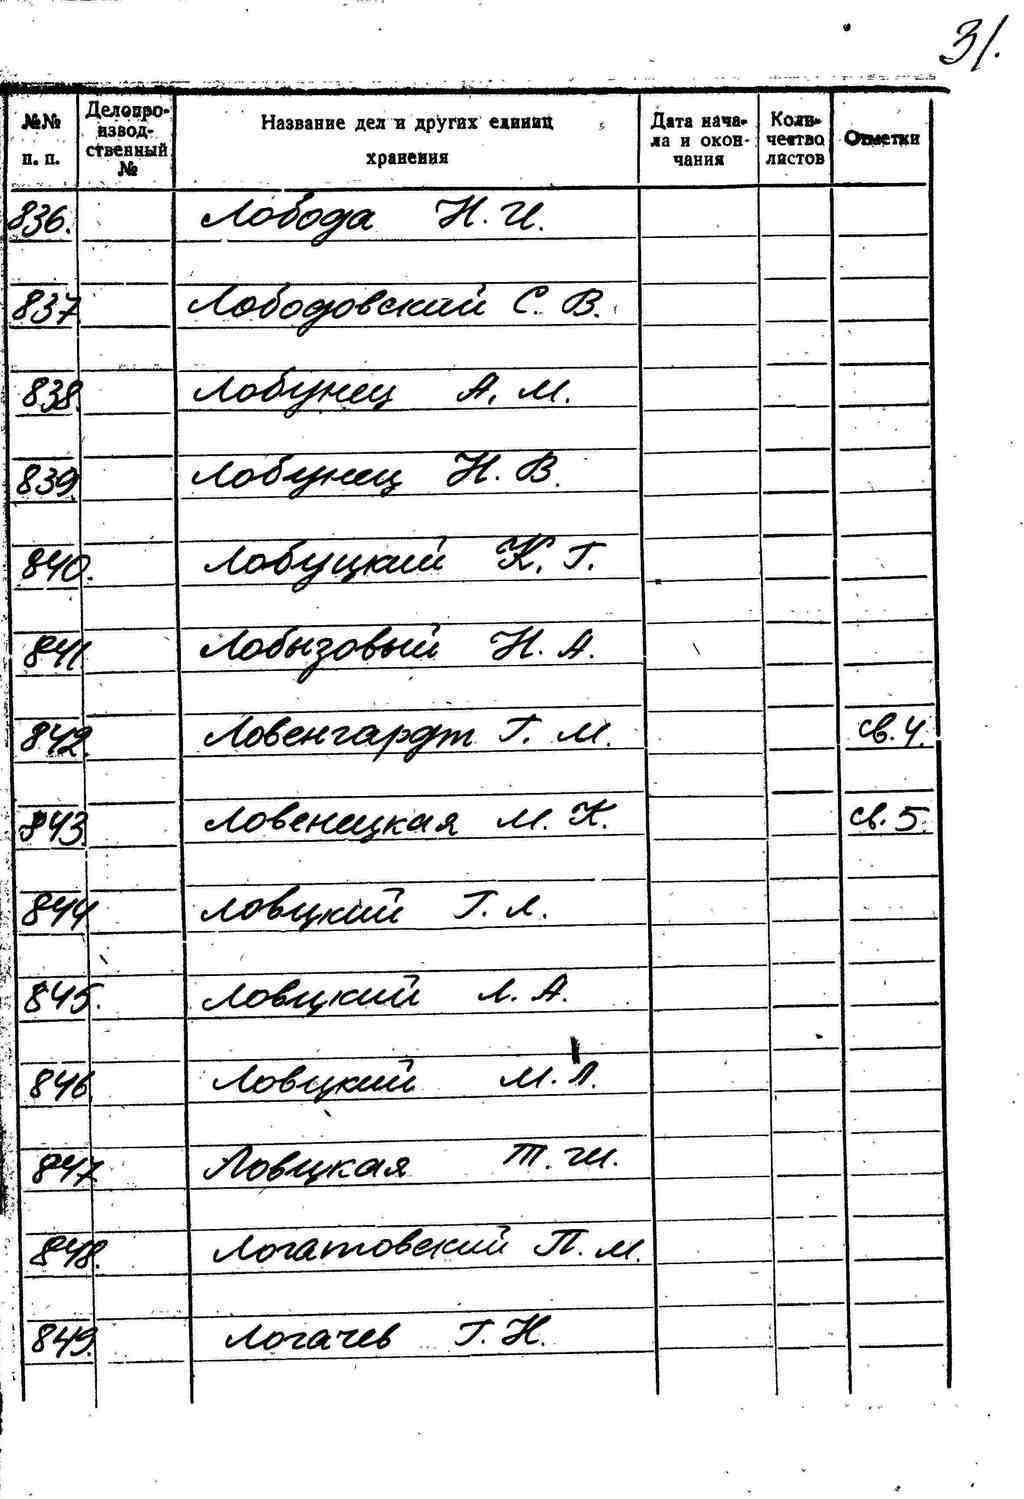 31.
№№ п. п.
Делопроизвод-ственный №
Название дел и других единиц хранения
Дата начала и окончания
Количество листов
Отметки
836. Лобода Н. И.
837 Лободовский С. В.
838. Лобунец А. М.
839. Лобунец Н. В.
840. Лобуцкий К. Г.
841 Лобызовый Н. А.
842. Ловенгардт Г. М. св. 4.
843. Ловенецкая М. К. св. 5.
844 Ловцкий Г. Л.
845. Ловцкий Л. А.
846 Ловцкий М. Л.
847 Ловцкая Т. Ш.
848. Логатовский П. М.
849. Логачев Г. Н.